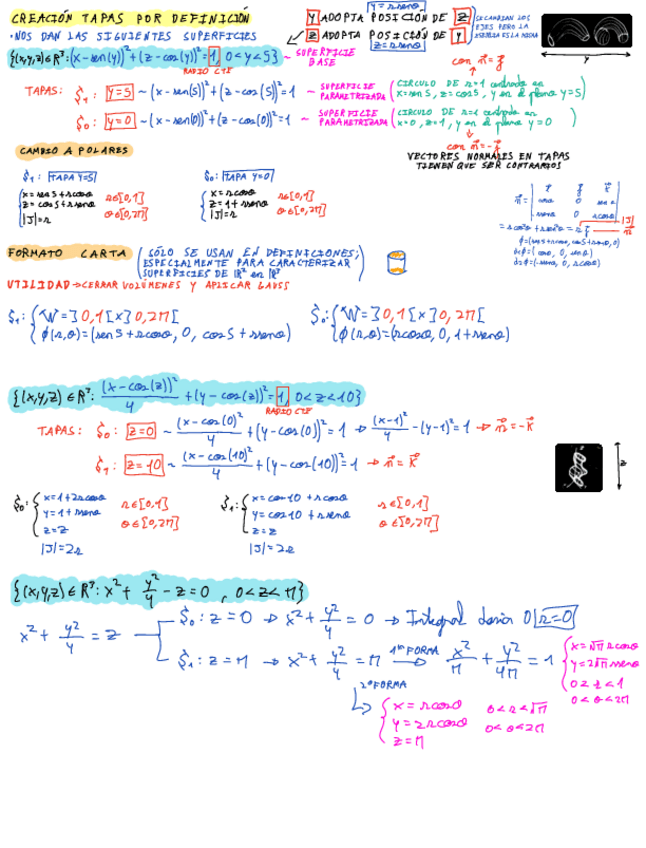 CREACIÓN TAPAS POR DEFINICIÓN
· NOS DAN LAS SIGUIENTES SUPERFICIES
y = rsenθ
Y ADOPTA POSICIÓN DE Z
Z ADOPTA POSICIÓN DE Y
z = rsenθ
SE CAMBIAN LOS EJES PERO LA ESENCIA ES LA MISMA
Y
{(x,y,z) ∈ R³: (x-sen(y))² + (z-cos(y))² = 1, 0<y<5} ~ SUPERFICIE BASE
RADIO CTE
con n⃗ = j
TAPAS: S₁: y=5 ~ (x-sen(5))² + (z-cos(5))² = 1 ~ SUPERFICIE PARAMETRIZADA (CIRCULO DE r=1 centrada en x=sen5, z=cos5, y en el plano y=5)
S₀: y=0 ~ (x-sen(0))² + (z-cos(0))² = 1 ~ SUPERFICIE PARAMETRIZADA (CIRCULO DE r=1 centrada en x=0, z=1, y en el plano y=0)
con n⃗ = -j
VECTORES NORMALES EN TAPAS
TIENEN QUE SER CONTRARIOS
CAMBIO A POLARES
S₁: TAPA Y=5
x = sen5 + rcosθ
z = cos5 + rsenθ
|J| = r
r∈[0,1]
θ∈[0,2π]
S₀: TAPA Y=0
x = rcosθ
z = 1 + rsenθ
|J| = r
r∈[0,1]
θ∈[0,2π]
FORMATO CARTA (SÓLO SE USAN EN DEFINICIONES, ESPECIALMENTE PARA CARACTERIZAR SUPERFICIES DE R² en R³)
UTILIDAD → CERRAR VOLÚMENES Y APLICAR GAUSS
S₁: { W = ]0,1[ x ]0,2π[
ϕ(r,θ) = (sen5 + rcosθ, 0, cos5 + rsenθ)
S₀: { W = ]0,1[ x ]0,2π[
ϕ(r,θ) = (rcosθ, 0, 1 + rsenθ)
{(x,y,z) ∈ R³: (x-cos(z))²/4 + (y-cos(z))² = 1, 0<z<10}
RADIO CTE
TAPAS: S₀: z=0 ~ (x-cos(0))²/4 + (y-cos(0))² = 1 → (x-1)²/4 - (y-1)² = 1 → n⃗ = -k⃗
S₁: z=10 ~ (x-cos(10))²/4 + (y-cos(10))² = 1 → n⃗ = k⃗
Z
S₀: { x = 1 + 2rcosθ
y = 1 + rsenθ
z = z
|J| = 2r
r∈[0,1]
θ∈[0,2π]
S₁: { x = cos10 + rcosθ
y = cos10 + rsenθ
z = z
|J| = 2r
r∈[0,1]
θ∈[0,2π]
{(x,y,z) ∈ R³: x² + y²/4 - z = 0, 0<z<π}
x² + y²/4 = z
S₀: z = 0 → x² + y²/4 = 0 → Integral daría 0 r=0
S₁: z = π → x² + y²/4 = π 1ª FORMA → x²/π + y²/4π = 1
x = √π rcosθ
y = 2√π rsenθ
0 ≥ r < 1
0 < θ < 2π
2ª FORMA
x = rcosθ
y = 2rcosθ
z = π
0 < r < √π
0 < θ < 2π